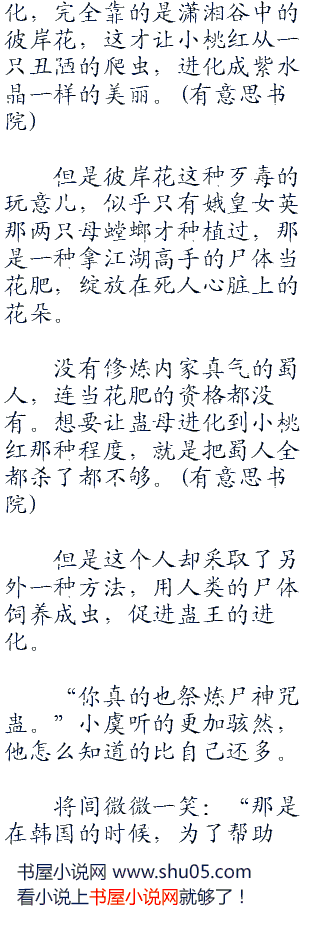 化，完全靠的是潇湘谷中的
彼岸花，这才让小桃红从一
只丑陋的爬虫，进化成紫水
晶一样的美丽。(有意思书
院)
但是彼岸花这种歹毒的
玩意儿，似乎只有娥皇女英
那两只母螳螂才种植过，那
是一种拿江湖高手的尸体当
花肥，绽放在死人心脏上的
花朵。
没有修炼内家真气的蜀
人，连当花肥的资格都没
有。想要让蛊母进化到小桃
红那种程度，就是把蜀人全
都杀了都不够。(有意思书
院)
但是这个人却采取了另
外一种方法，用人类的尸体
饲养成虫，促进蛊王的进
化。
“你真的也祭炼尸神咒
蛊。”小虞听的更加骇然，
他怎么知道的比自己还多。
将闾微微一笑：“那是
在韩国的时候，为了帮助
书屋小说网 www.shu05.com
看小说上书屋小说网就够了！